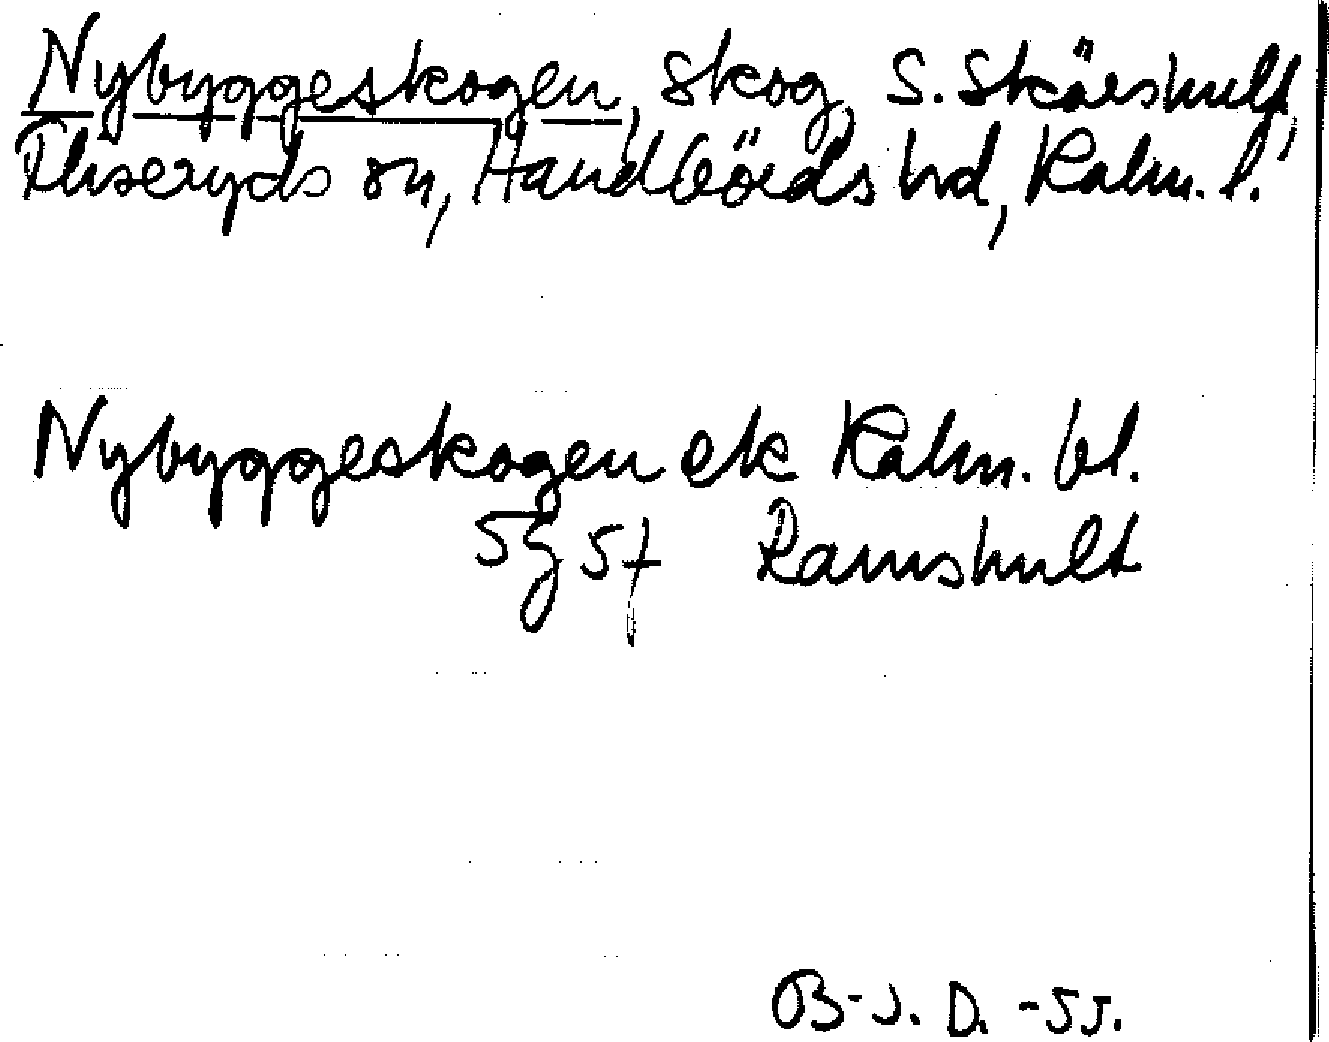 Nybyggeskogen, skog, S. Skärshult,
Fliseryds sn, Handbörds hd, Kalm. l.
Nybyggeskogen ek Kalm. bl.
5g5f Ramshult
B-J. D. -55.